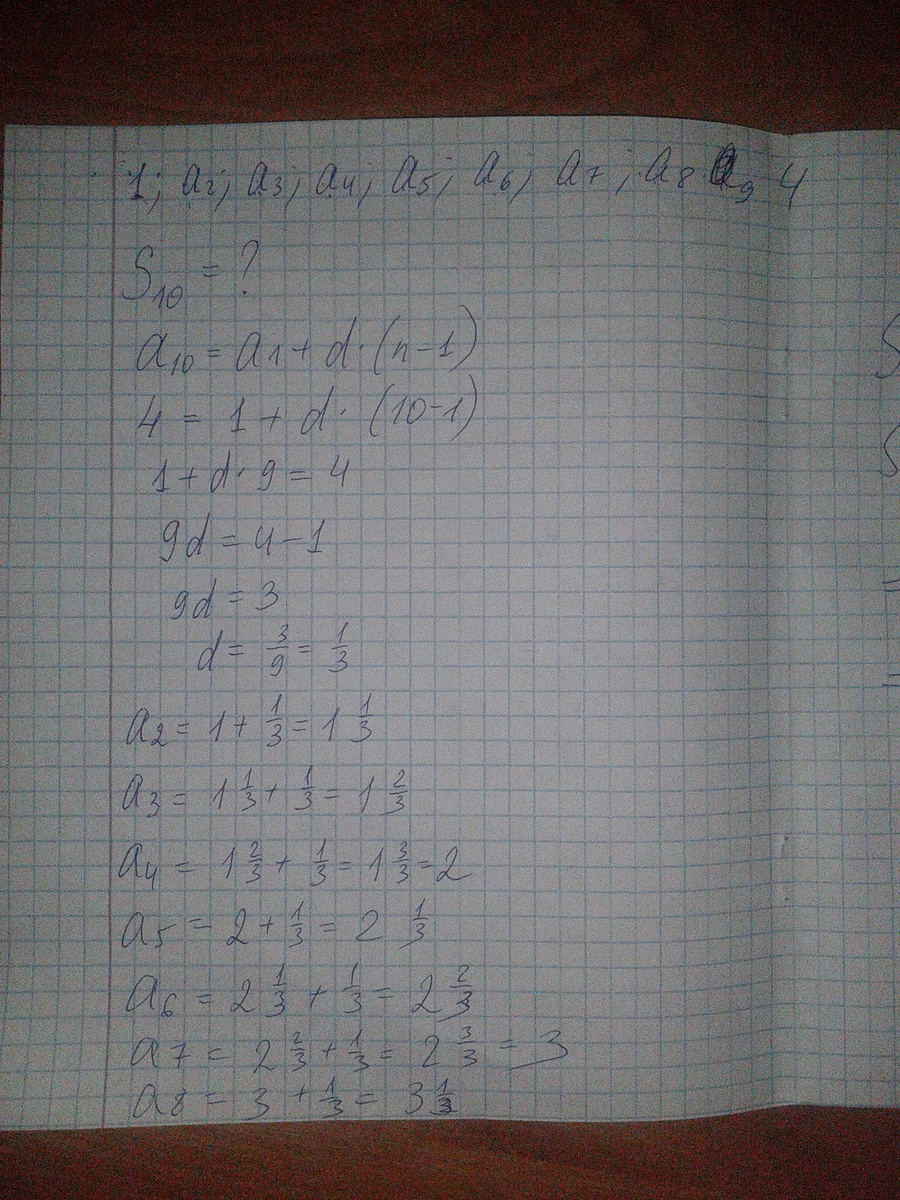 1; a2; a3; a4; a5; a6; a7; a8 a9 4
S10 = ?
a10 = a1 + d · (n-1)
4 = 1 + d · (10-1)
1 + d · 9 = 4
9d = 4 - 1
9d = 3
d = 3/9 = 1/3
a2 = 1 + 1/3 = 1 1/3
a3 = 1 1/3 + 1/3 = 1 2/3
a4 = 1 2/3 + 1/3 = 1 3/3 = 2
a5 = 2 + 1/3 = 2 1/3
a6 = 2 1/3 + 1/3 = 2 2/3
a7 = 2 2/3 + 1/3 = 2 3/3 = 3
a8 = 3 + 1/3 = 3 1/3